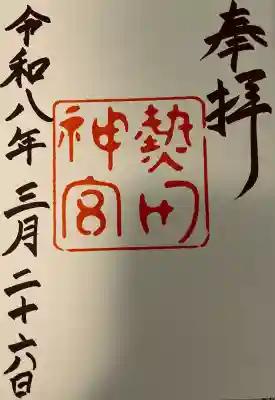 奉拝
熱田
神宮
令和八年 三月 二十六日